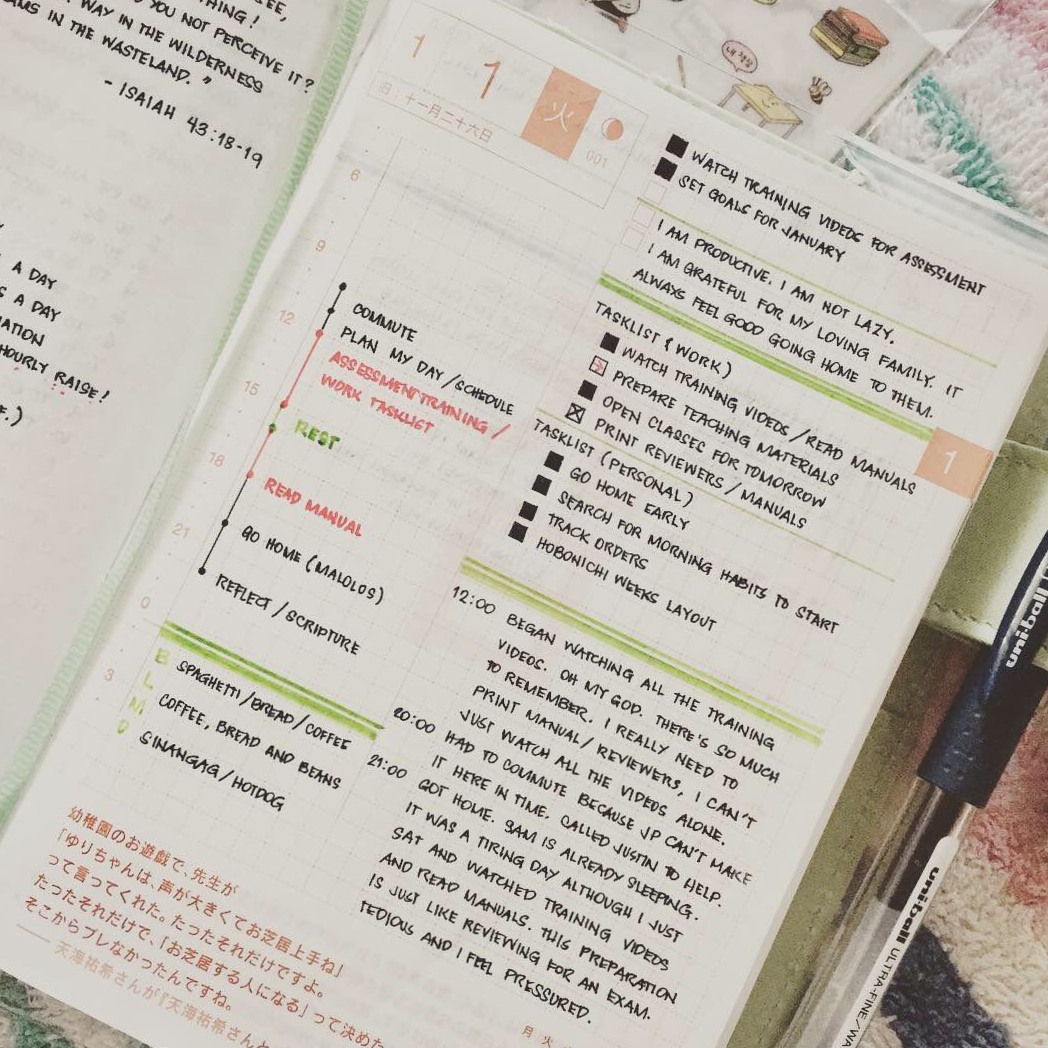 THING!
YOU NOT PERCEIVE IT?
WAY IN THE WILDERNESS
IN THE WASTELAND."
- ISAIAH 43:18-19
A DAY
A DAY
HOURLY RAISE!
1
1
火
001
旧:十一月二十六日
내 책상
6
9
12
15
18
21
0
3
COMMUTE
PLAN MY DAY/SCHEDULE
ASSESSMENT TRAINING /
WORK TASKLIST
REST
READ MANUAL
GO HOME (MALOLOS)
REFLECT/SCRIPTURE
B
L
M
D
SPAGHETTI/BREAD/COFFEE
COFFEE, BREAD AND BEANS
SINANGAG/HOTDOG
WATCH TRAINING VIDEOS FOR ASSESSMENT
SET GOALS FOR JANUARY
I AM PRODUCTIVE. I AM NOT LAZY.
I AM GRATEFUL FOR MY LOVING FAMILY. IT
ALWAYS FEEL GOOD GOING HOME TO THEM.
TASKLIST (WORK)
WATCH TRAINING VIDEOS/READ MANUALS
PREPARE TEACHING MATERIALS
OPEN CLASSES FOR TOMORROW
PRINT REVIEWERS/MANUALS
TASKLIST (PERSONAL)
GO HOME EARLY
SEARCH FOR MORNING HABITS TO START
TRACK ORDERS
HOBONICHI WEEKS LAYOUT
1
12:00 BEGAN WATCHING ALL THE TRAINING
VIDEOS. OH MY GOD. THERE'S SO MUCH
TO REMEMBER. I REALLY NEED TO
PRINT MANUAL/REVIEWERS, I CAN'T
JUST WATCH ALL THE VIDEOS ALONE.
20:00 HAD TO COMMUTE BECAUSE JP CAN'T MAKE
IT HERE IN TIME. CALLED JUSTIN TO HELP.
21:00 GOT HOME. SAM IS ALREADY SLEEPING.
IT WAS A TIRING DAY ALTHOUGH I JUST
SAT AND WATCHED TRAINING VIDEOS
AND READ MANUALS. THIS PREPARATION
IS JUST LIKE REVIEWING FOR AN EXAM.
TEDIOUS AND I FEEL PRESSURED.
幼稚園のお遊戯で、先生が
「ゆりちゃんは、声が大きくてお芝居上手ね」
って言ってくれた。たったそれだけですよ。
たったそれだけで、「お芝居する人になる」って決めた
そこからブレなかったんですね。
── 天海祐希さんが『天海祐希さんと
月 火
uni-ball
uni-ball ULTRA-FINE/WA